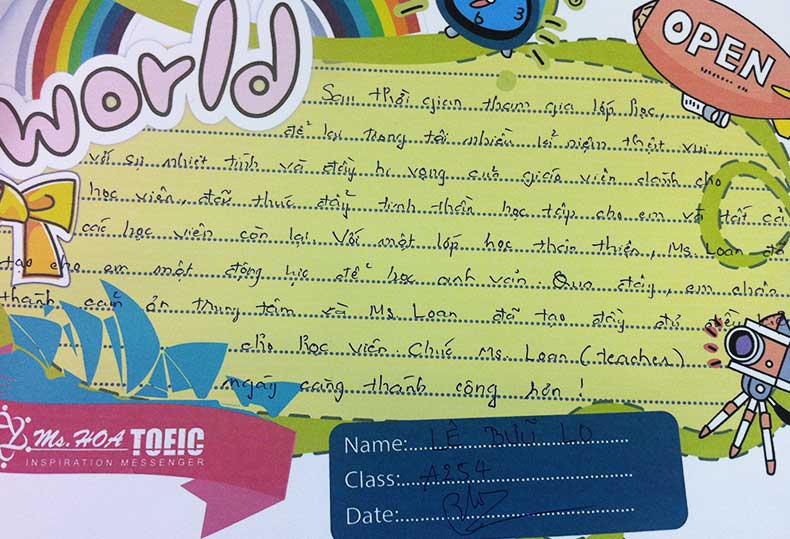 world
6 3
OPEN
Sau thời gian tham gia lớp học,
để lại trong tôi nhiều kỉ niệm thật vui,
với sự nhiệt tình và đầy hi vọng của giáo viên dành cho
học viên, đã thúc đẩy tinh thần học tập cho em và tất cả
các học viên còn lại. Với một lớp học thân thiện, Ms. Loan đã
tạo cho em một động lực để học anh văn. Qua đây, em chân
thành cảm ơn trung tâm và Ms Loan đã tạo đầy đủ điều
cho học viên Chúc Ms. Loan (teacher)
ngày càng thành công hơn !
Ms. HOA TOEIC
INSPIRATION MESSENGER
Name: LÊ BỬU LO
Class: A254
Date: